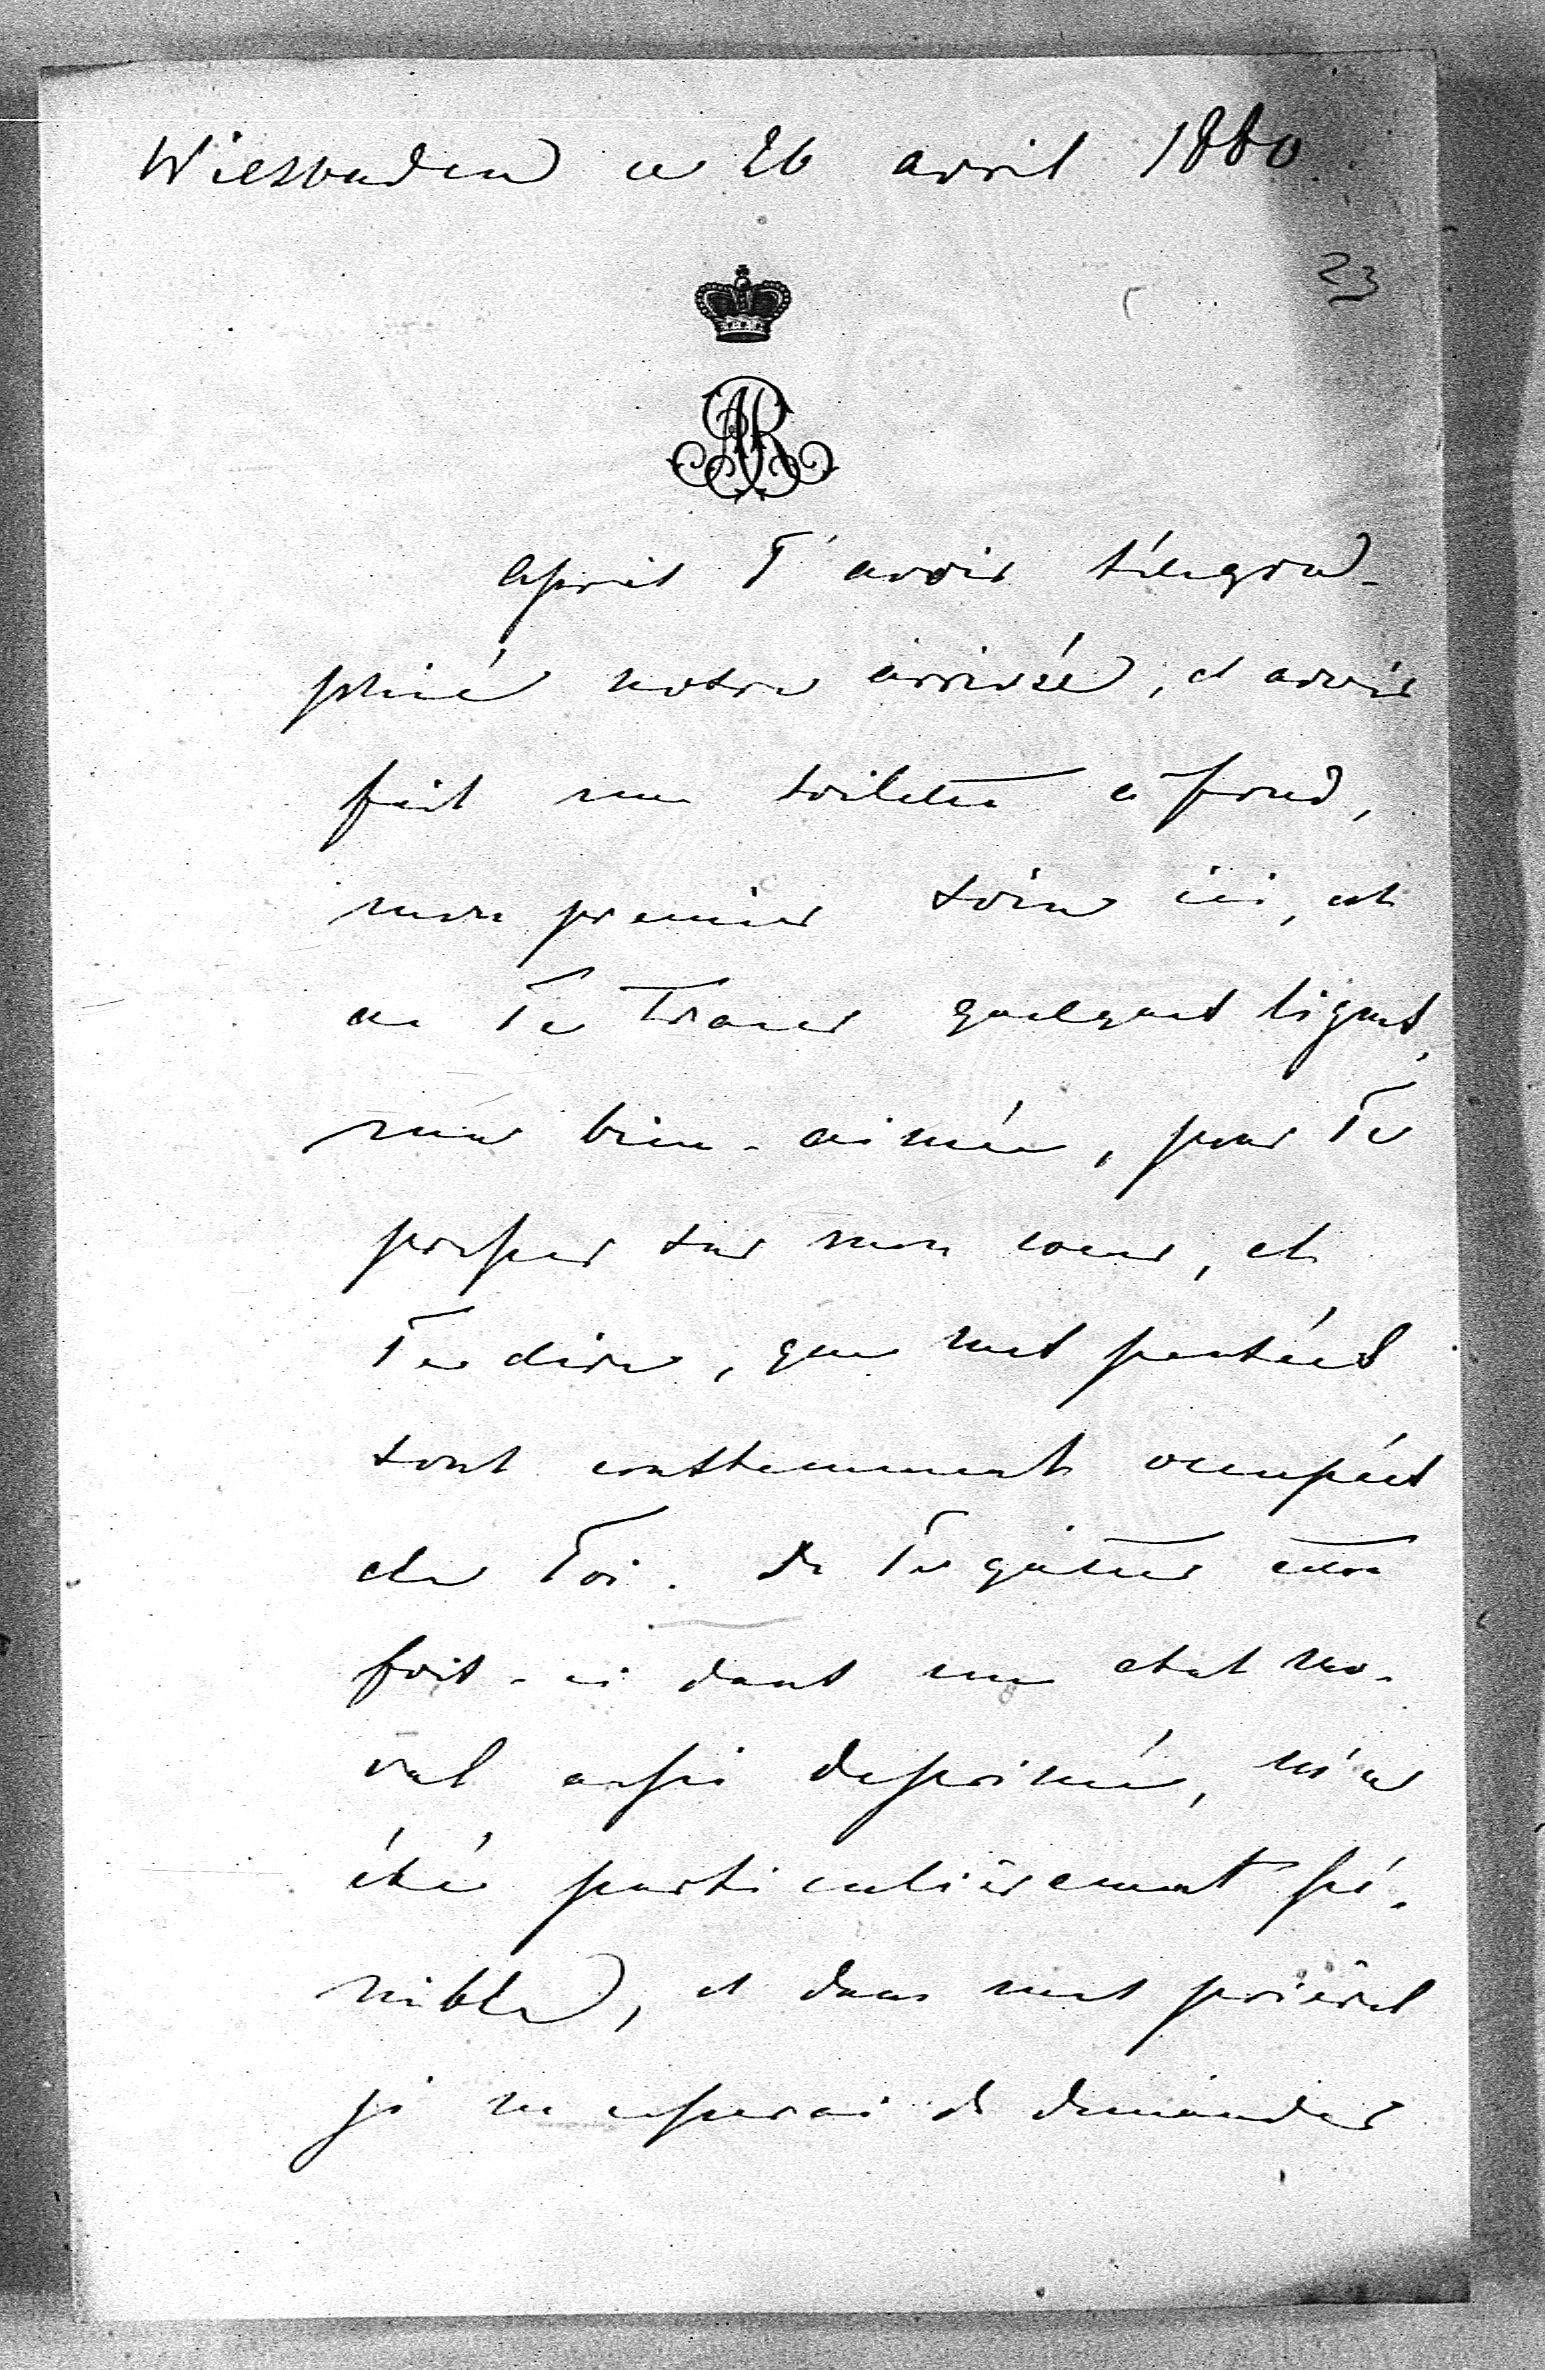 Wiesbaden ce 26 avril 1880
23
AR
Après T'avoir télégra-
phié notre arrivée, et avoir
fait une toilette à fond,
mon premier soin ici, est
de Te tracer quelques lignes,
ma bien-aimée, pour Te
presser sur mon coeur, et
Te dire, que mes pensées
sont constemment occupées
de Toi. De Te quitter cette
fois-ci dans un etat mo-
ral aussi deprimé, m'a
été particulièrement pé-
nible, et dans mes prières
je ne cesserai de demander